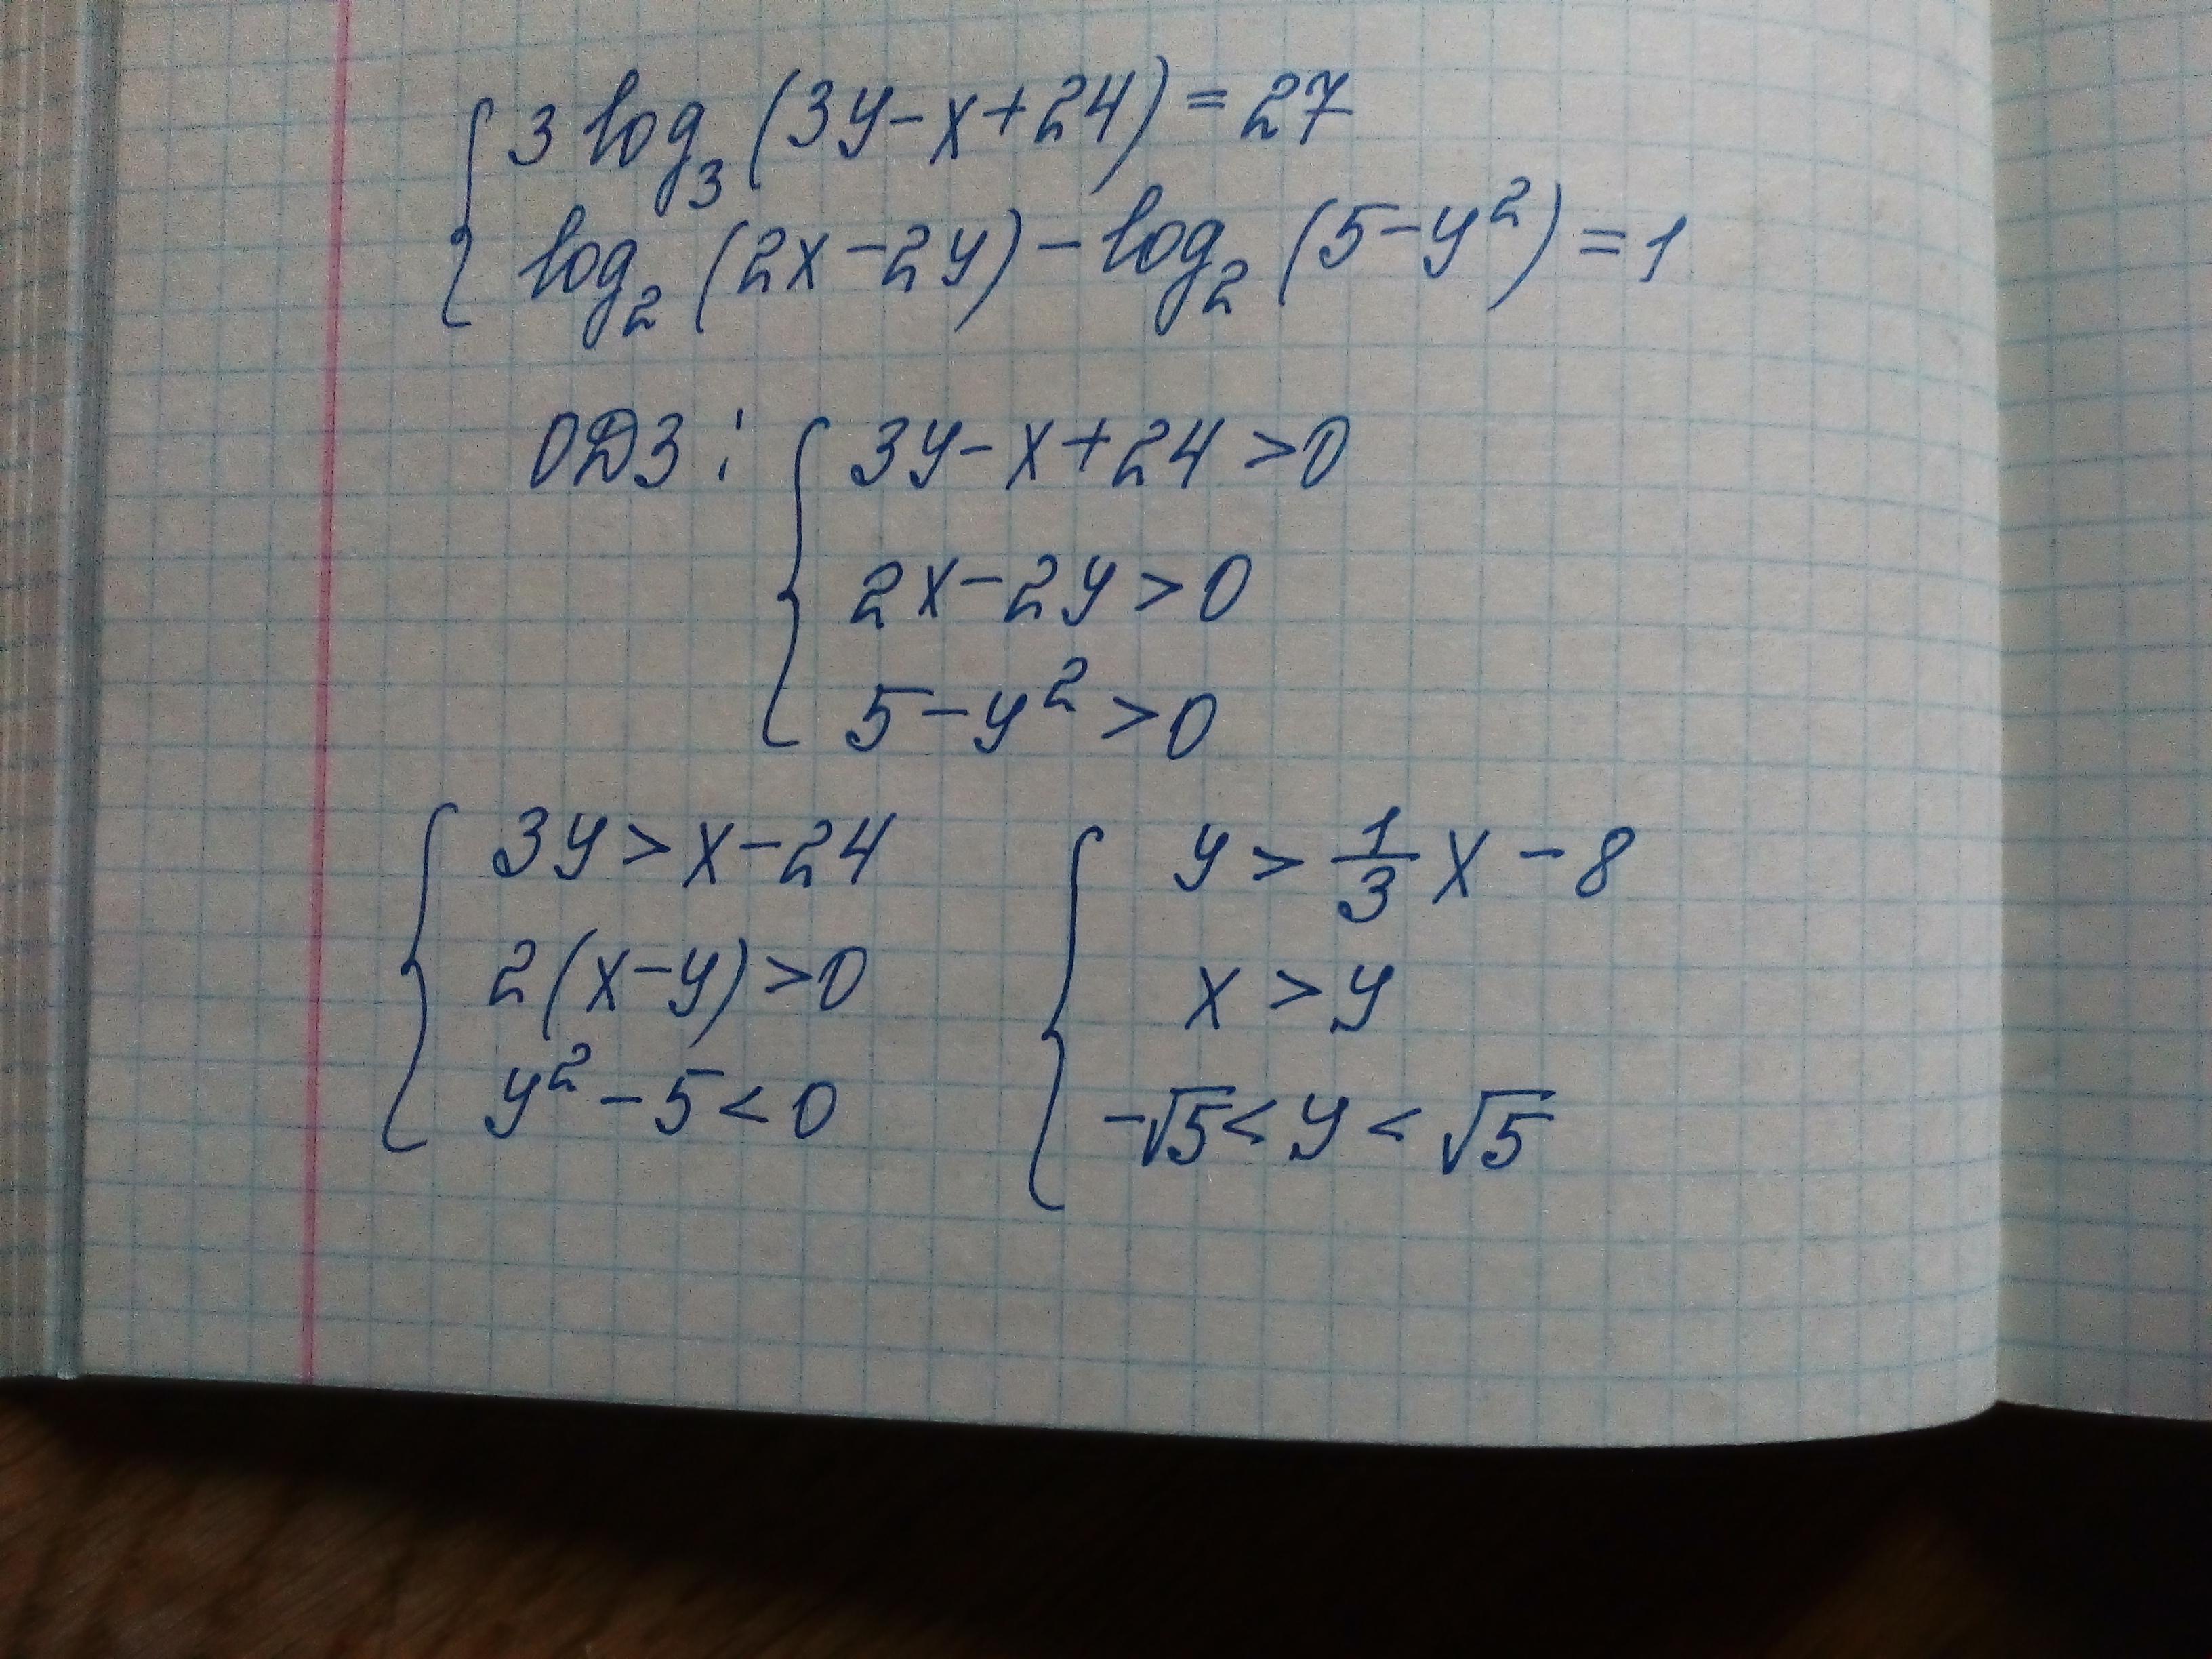 3 log₃ (3y - x + 24) = 27
log₂ (2x - 2y) - log₂ (5 - y²) = 1
ОДЗ: 3y - x + 24 > 0
2x - 2y > 0
5 - y² > 0
3y > x - 24
2(x - y) > 0
y² - 5 < 0
y > 1/3 x - 8
x > y
-√5 < y < √5